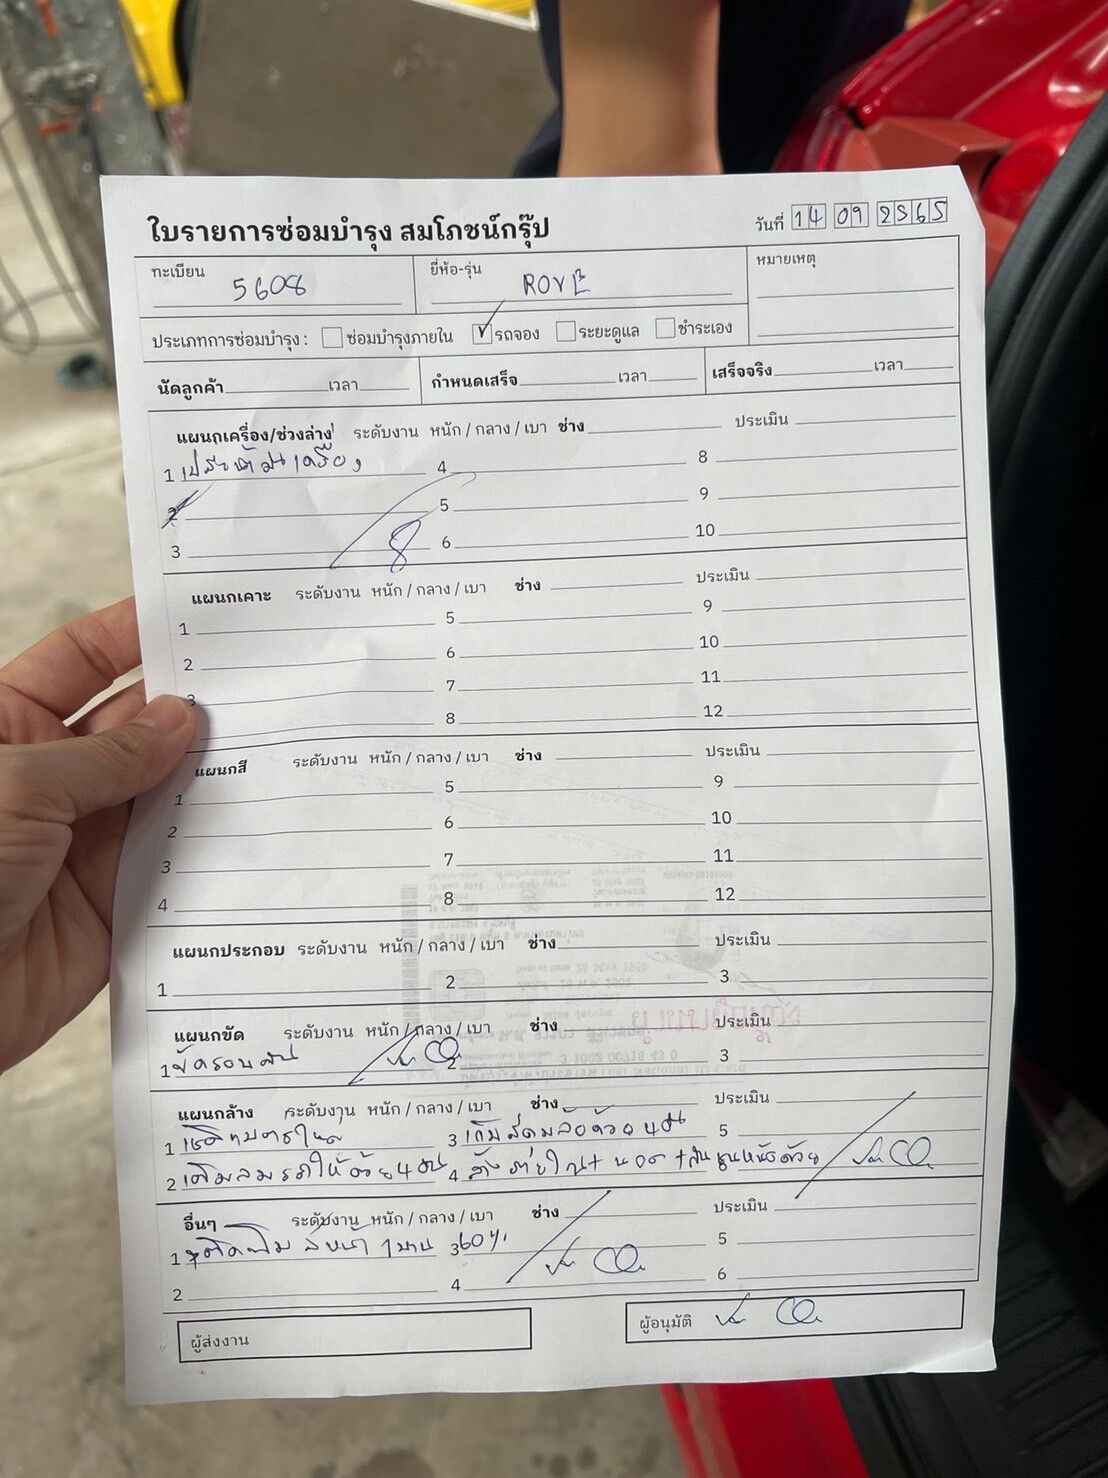 ใบรายการซ่อมบำรุง สมโภชน์กรุ๊ป
วันที่ 14 09 2565
ทะเบียน 5608 ยี่ห้อ-รุ่น ROVE หมายเหตุ
ประเภทการซ่อมบำรุง : ซ่อมบำรุงภายใน รถจอง ระยะดูแล ชำระเอง
นัดลูกค้า เวลา กำหนดเสร็จ เวลา เสร็จจริง เวลา
แผนกเครื่อง/ช่วงล่าง ระดับงาน หนัก / กลาง / เบา ช่าง ประเมิน
1 4 8
2 5 9
3 6 10
แผนกเคาะ ระดับงาน หนัก / กลาง / เบา ช่าง ประเมิน
1 5 9
2 6 10
3 7 11
8 12
แผนกสี ระดับงาน หนัก / กลาง / เบา ช่าง ประเมิน
1 5 9
2 6 10
3 7 11
4 8 12
แผนกประกอบ ระดับงาน หนัก / กลาง / เบา ช่าง ประเมิน
1 2 3
แผนกขัด ระดับงาน หนัก / กลาง / เบา ช่าง ประเมิน
1 ขัดรอบคัน 2 3
แผนกล้าง ระดับงาน หนัก / กลาง / เบา ช่าง ประเมิน
1 3 5
2 เติมลมรถให้ด้วย 4 เส้น 4
อื่นๆ ระดับงาน หนัก / กลาง / เบา ช่าง ประเมิน
1 ติดฟิล์ม 1 บาน 3 60% 5
2 4 6
ผู้ส่งงาน ผู้อนุมัติ